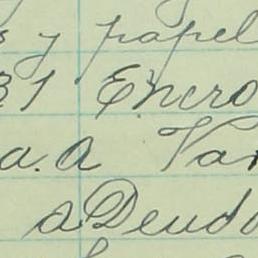 y papel
31 Enero
a. a Var
a Deudo